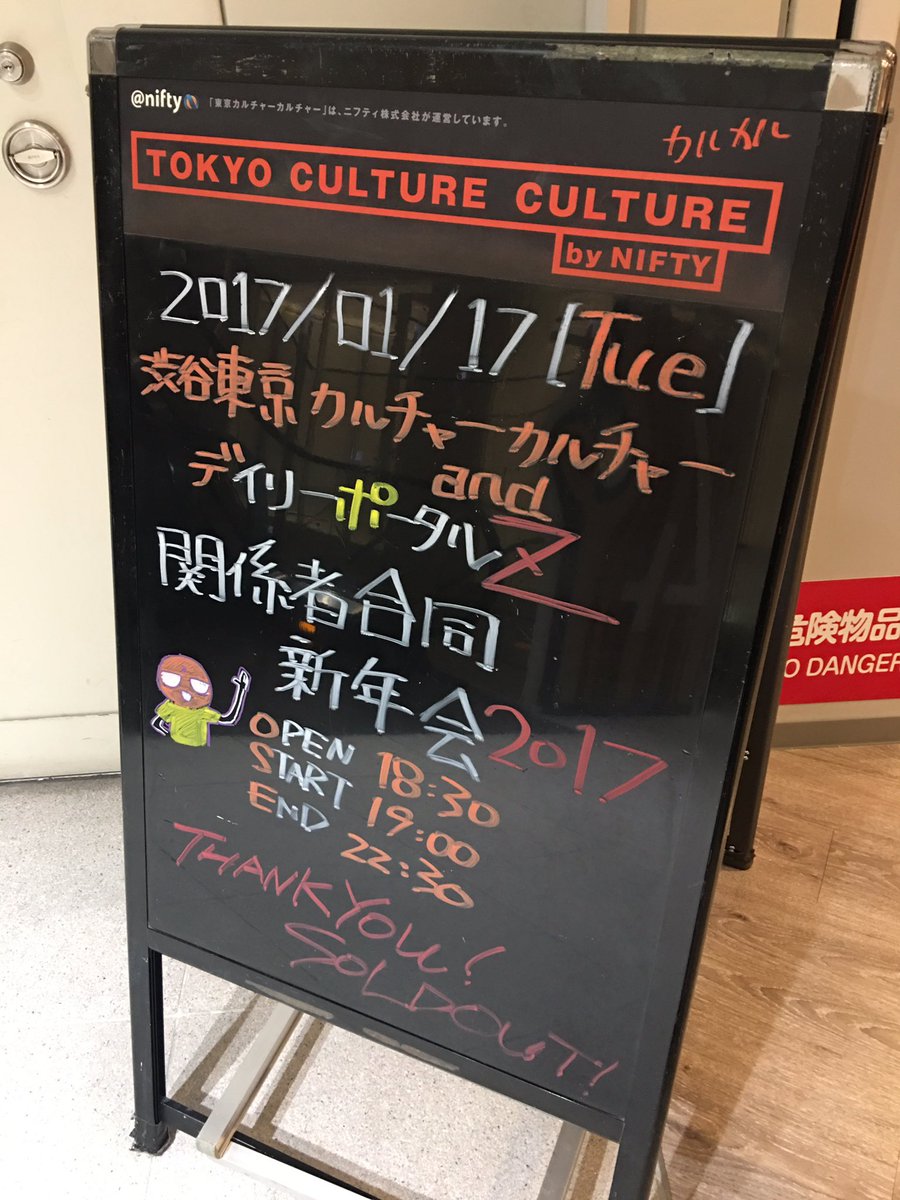 @nifty 「東京カルチャーカルチャー」は、ニフティ株式会社が運営しています。
カルカル
TOKYO CULTURE CULTURE
by NIFTY
2017/01/17 [Tue]
渋谷東京カルチャーカルチャー
and
デイリーポータルZ
関係者合同
新年会2017
OPEN 18:30
START 19:00
END 22:30
THANK YOU!
SOLDOUT!
危険物品
O DANGER